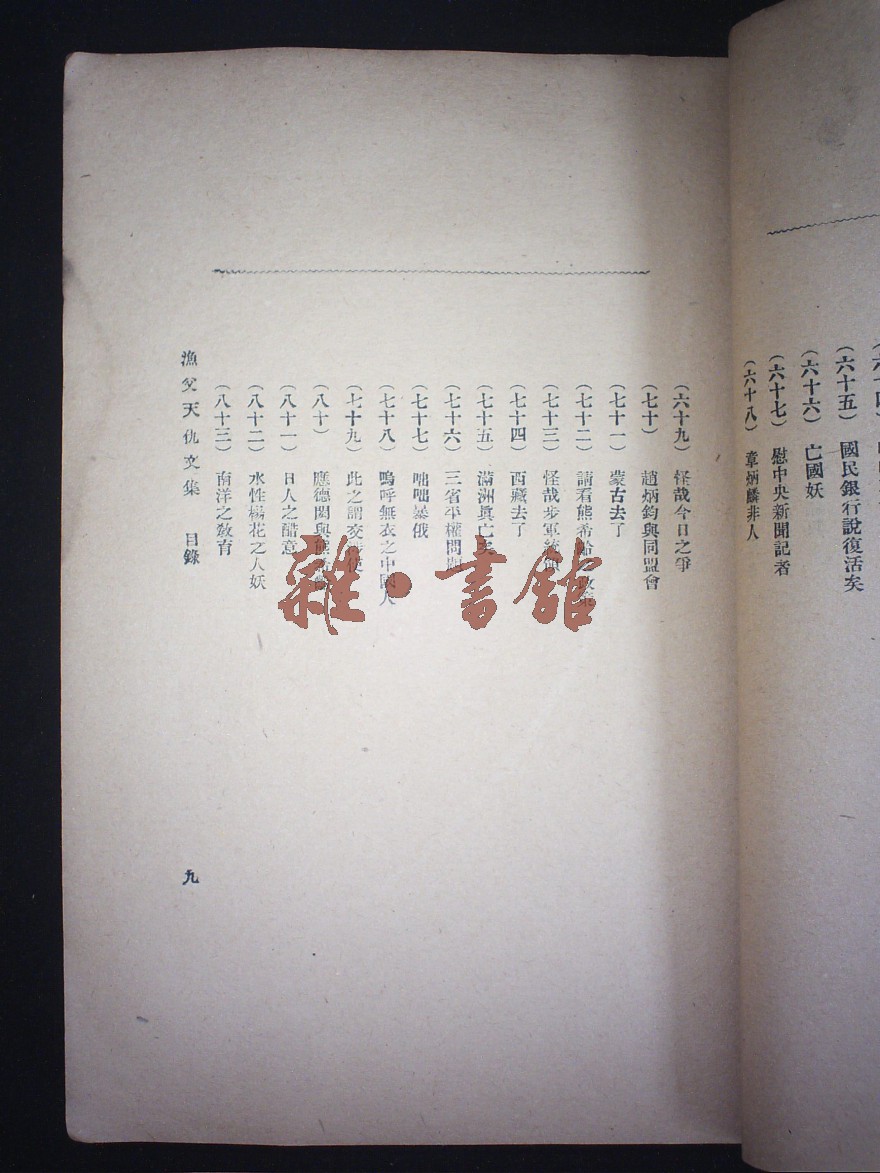 (六十五) 國民銀行說復活矣
(六十六) 亡國妖
(六十七) 慰中央新聞記者
(六十八) 章炳麟非人
(六十九) 怪哉今日之爭
(七十) 趙炳鈞與同盟會
(七十一) 蒙古去了
(七十二) 請看熊希齡
(七十三) 怪哉步軍統領
(七十四) 西藏去了
(七十五) 滿洲眞亡矣
(七十六) 三省平權問題
(七十七) 咄咄暴俄
(七十八) 嗚呼無衣之中國人
(七十九) 此之謂交
(八十) 應德閎與熊希齡
(八十一) 日人之酷意
(八十二) 水性楊花之人妖
(八十三) 南洋之敎育
漁父天仇文集 目錄
九
雜·書館